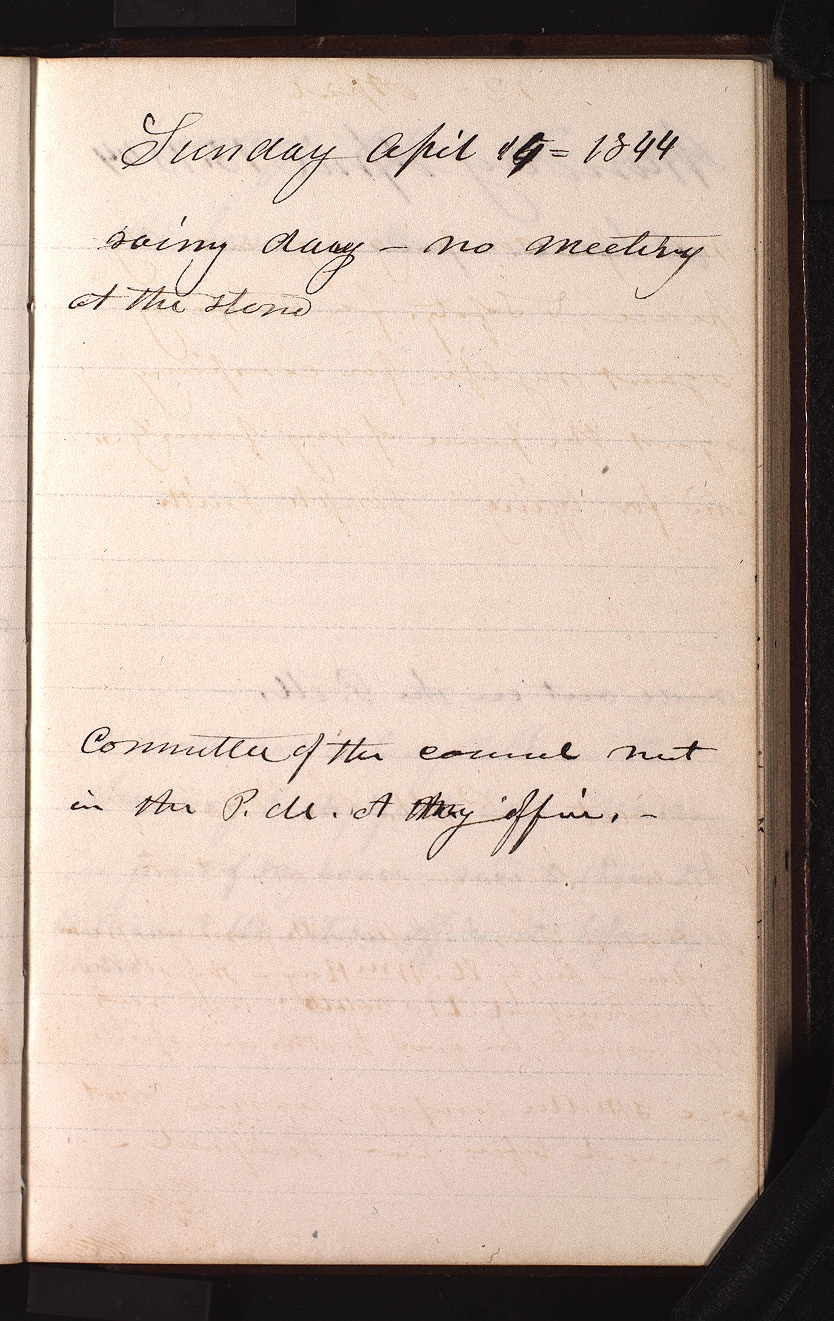 Sunday April 14 = 1844
rainy day — no meeting
at the stand
Committee of the council met
in the P.M. at my office. —